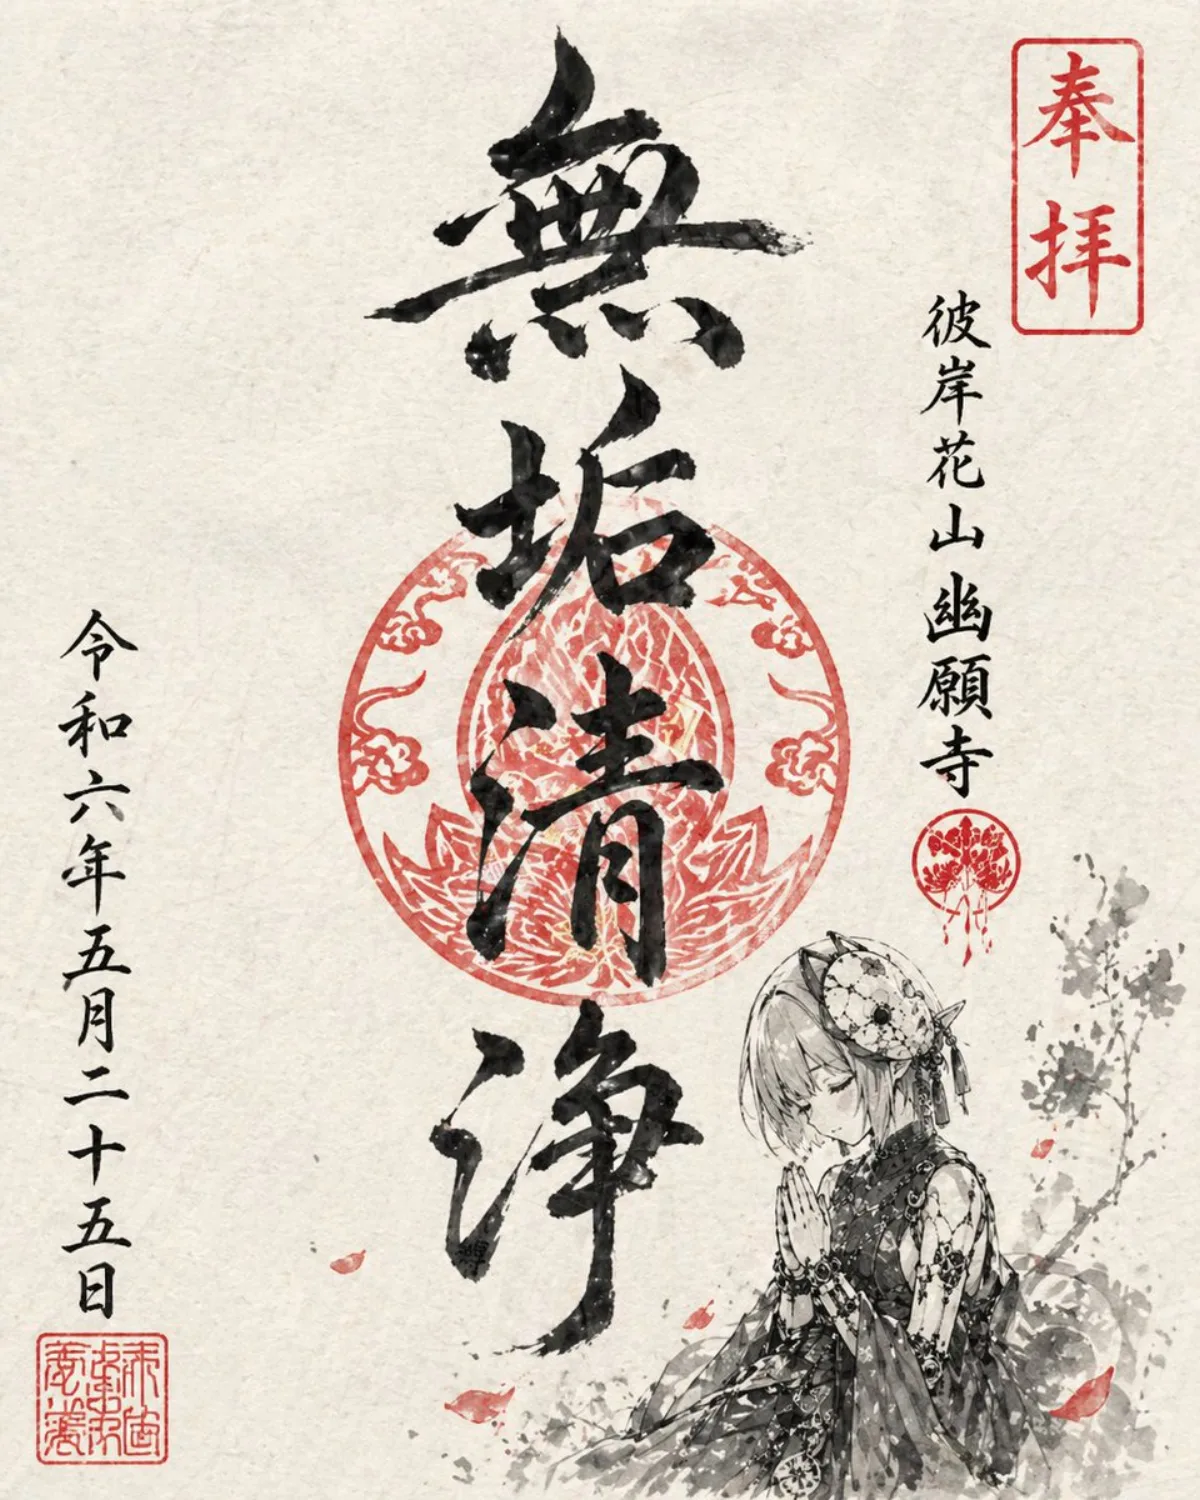 奉拝
彼岸花山幽願寺
無垢清浄
令和六年五月二十五日